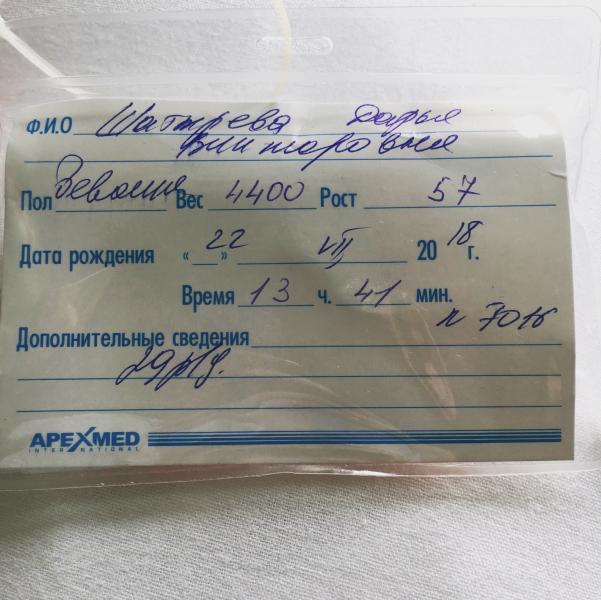 Ф.И.О Шатырева Дарья
Викторовна
Пол Девочка Вес 4400 Рост 57
Дата рождения « 22 » VII 20 18 г.
Время 13 ч. 41 мин.
Дополнительные сведения
APEXMED
INTERNATIONAL